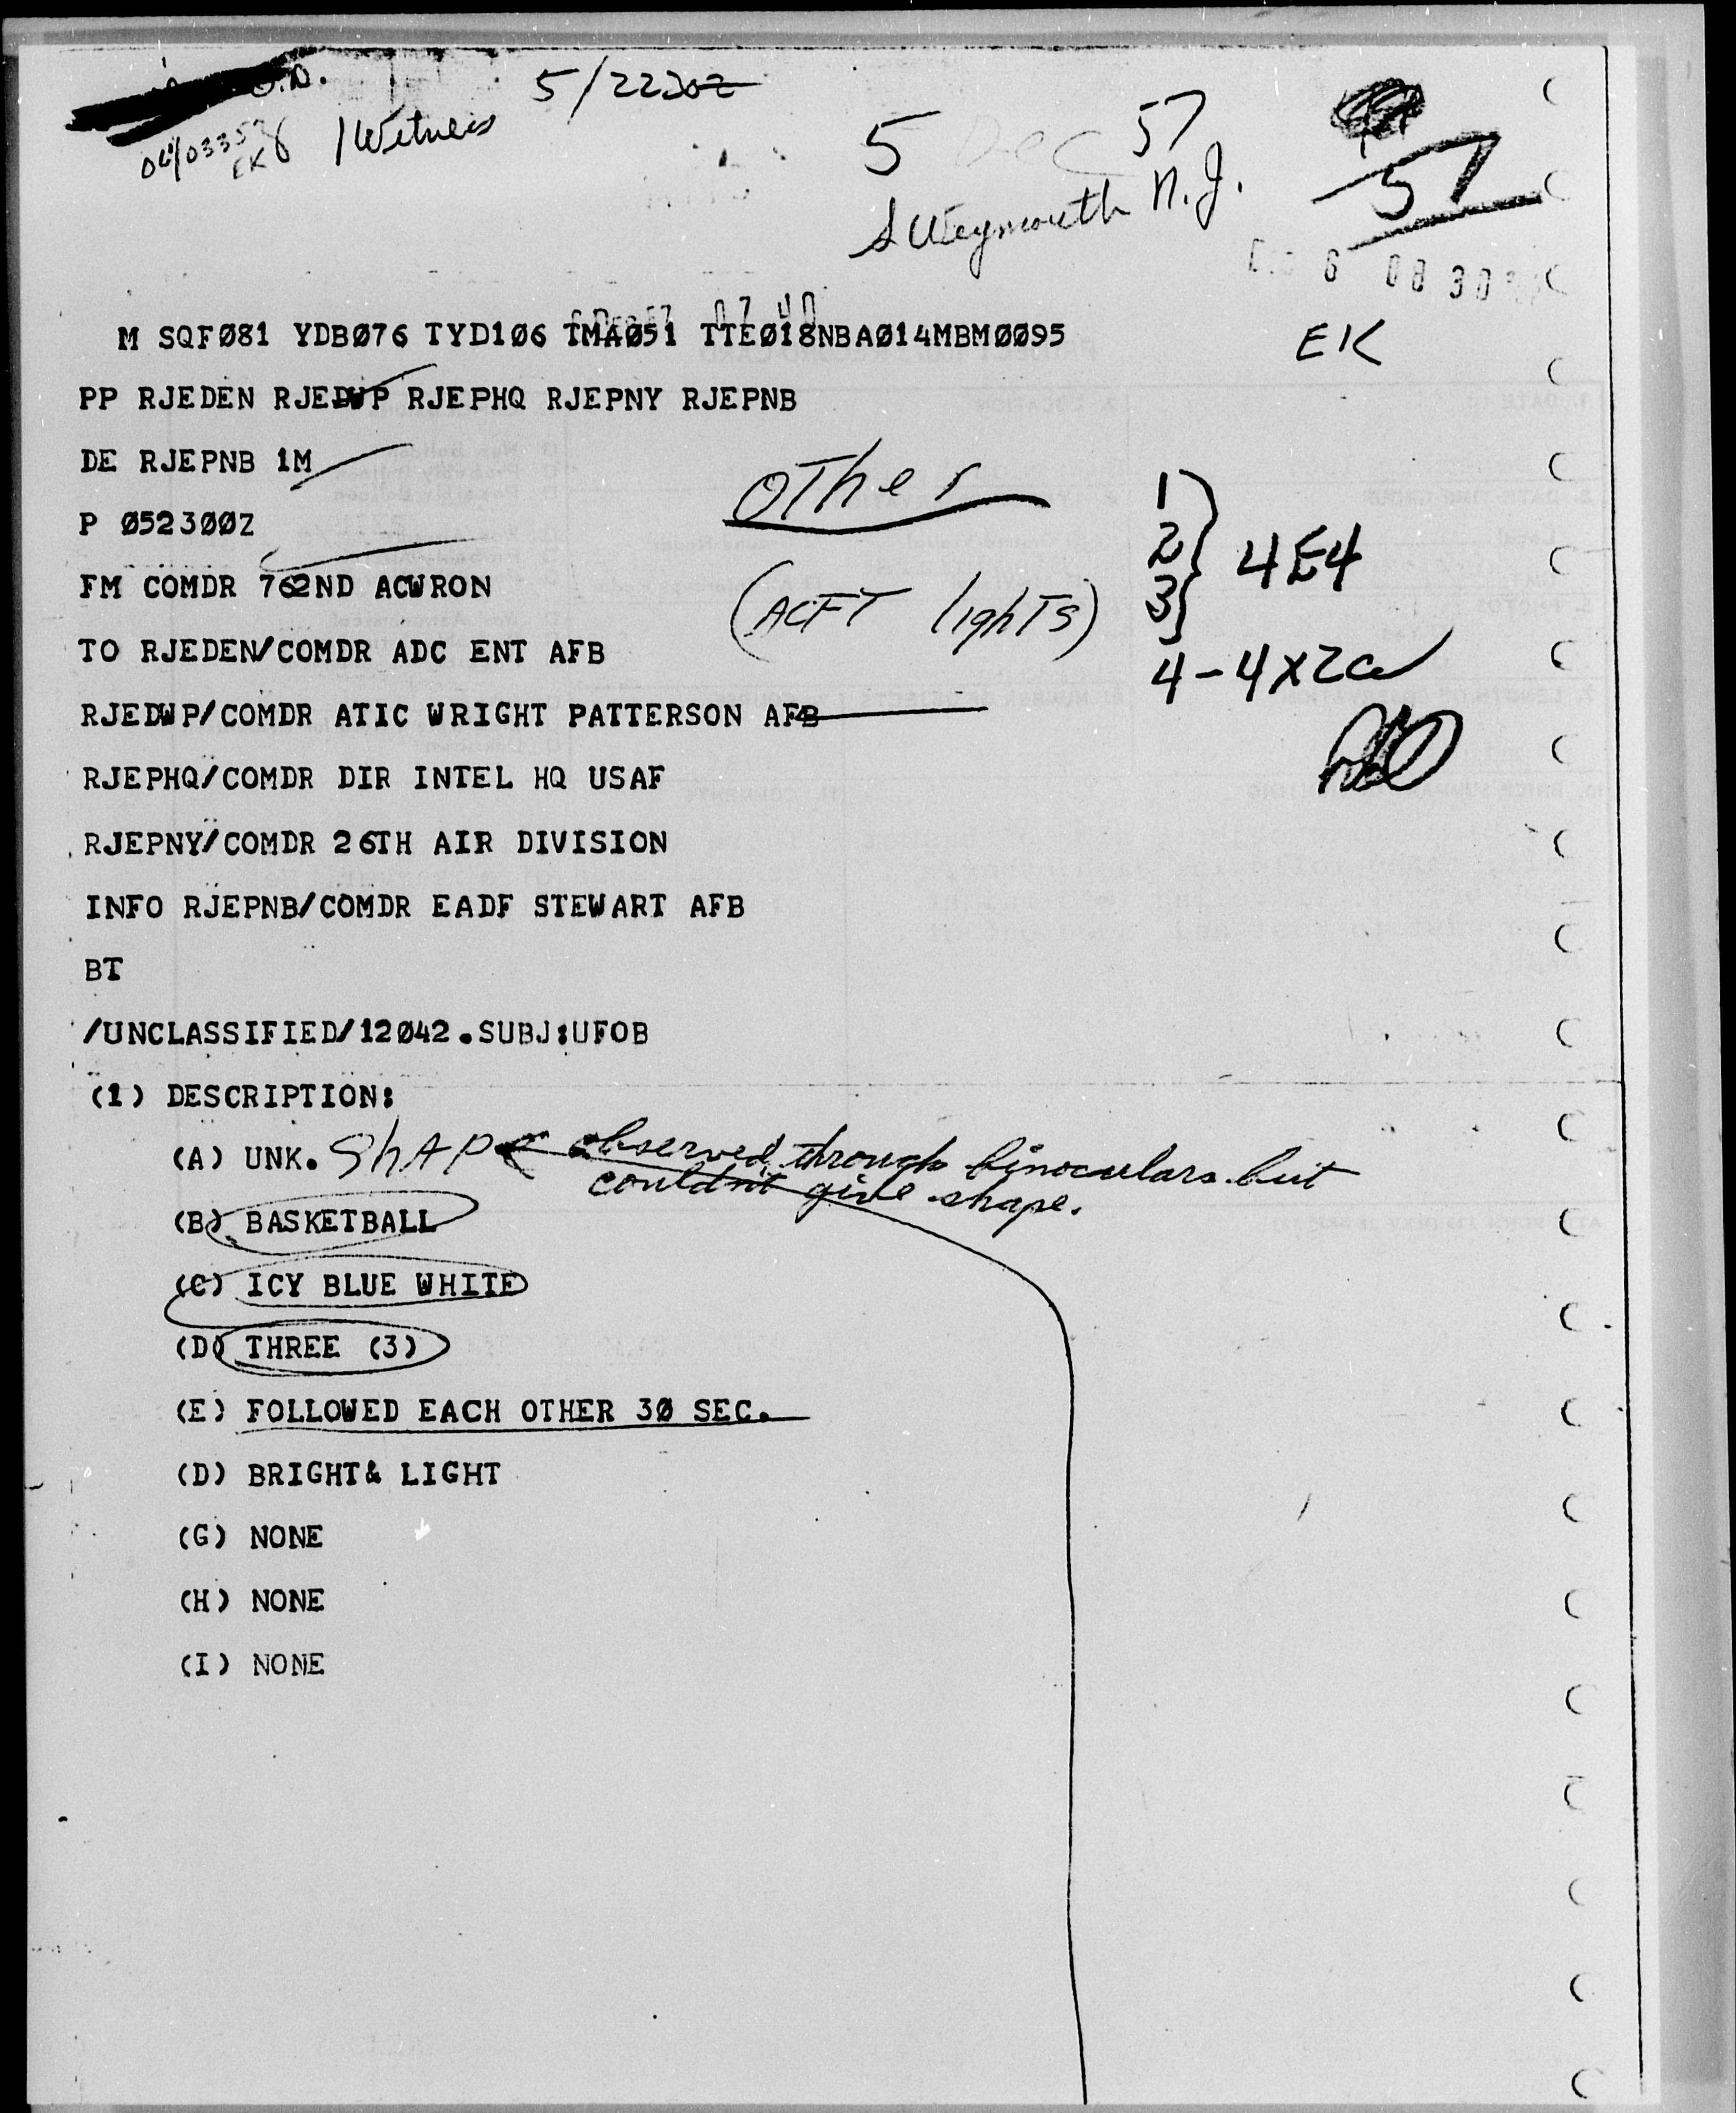 5/2230Z
1 Witness
5 Dec 57
S Weymouth N.J.
57
6 08 30
07 40
M SQFØ81 YDBØ76 TYD1Ø6 TMAØ51 TTEØ18NBAØ14MBMØØ95
EK
PP RJEDEN RJEDWP RJEPHQ RJEPNY RJEPNB
DE RJEPNB 1M
OTher
P Ø523ØØZ
1
2 4E4
3
FM COMDR 762ND ACWRON
(ACFT lighTs)
TO RJEDEN/COMDR ADC ENT AFB
RJEDWP/COMDR ATIC WRIGHT PATTERSON AFB
RJEPHQ/COMDR DIR INTEL HQ USAF
RJEPNY/COMDR 26TH AIR DIVISION
INFO RJEPNB/COMDR EADF STEWART AFB
BT
/UNCLASSIFIED/12Ø42.SUBJ:UFOB
(1) DESCRIPTION:
(A) UNK. ShAPe observed through binoculars but
couldn't give shape.
(B) BASKETBALL
(C) ICY BLUE WHITE
(D) THREE (3)
(E) FOLLOWED EACH OTHER 3Ø SEC.
(D) BRIGHT& LIGHT
(G) NONE
(H) NONE
(I) NONE